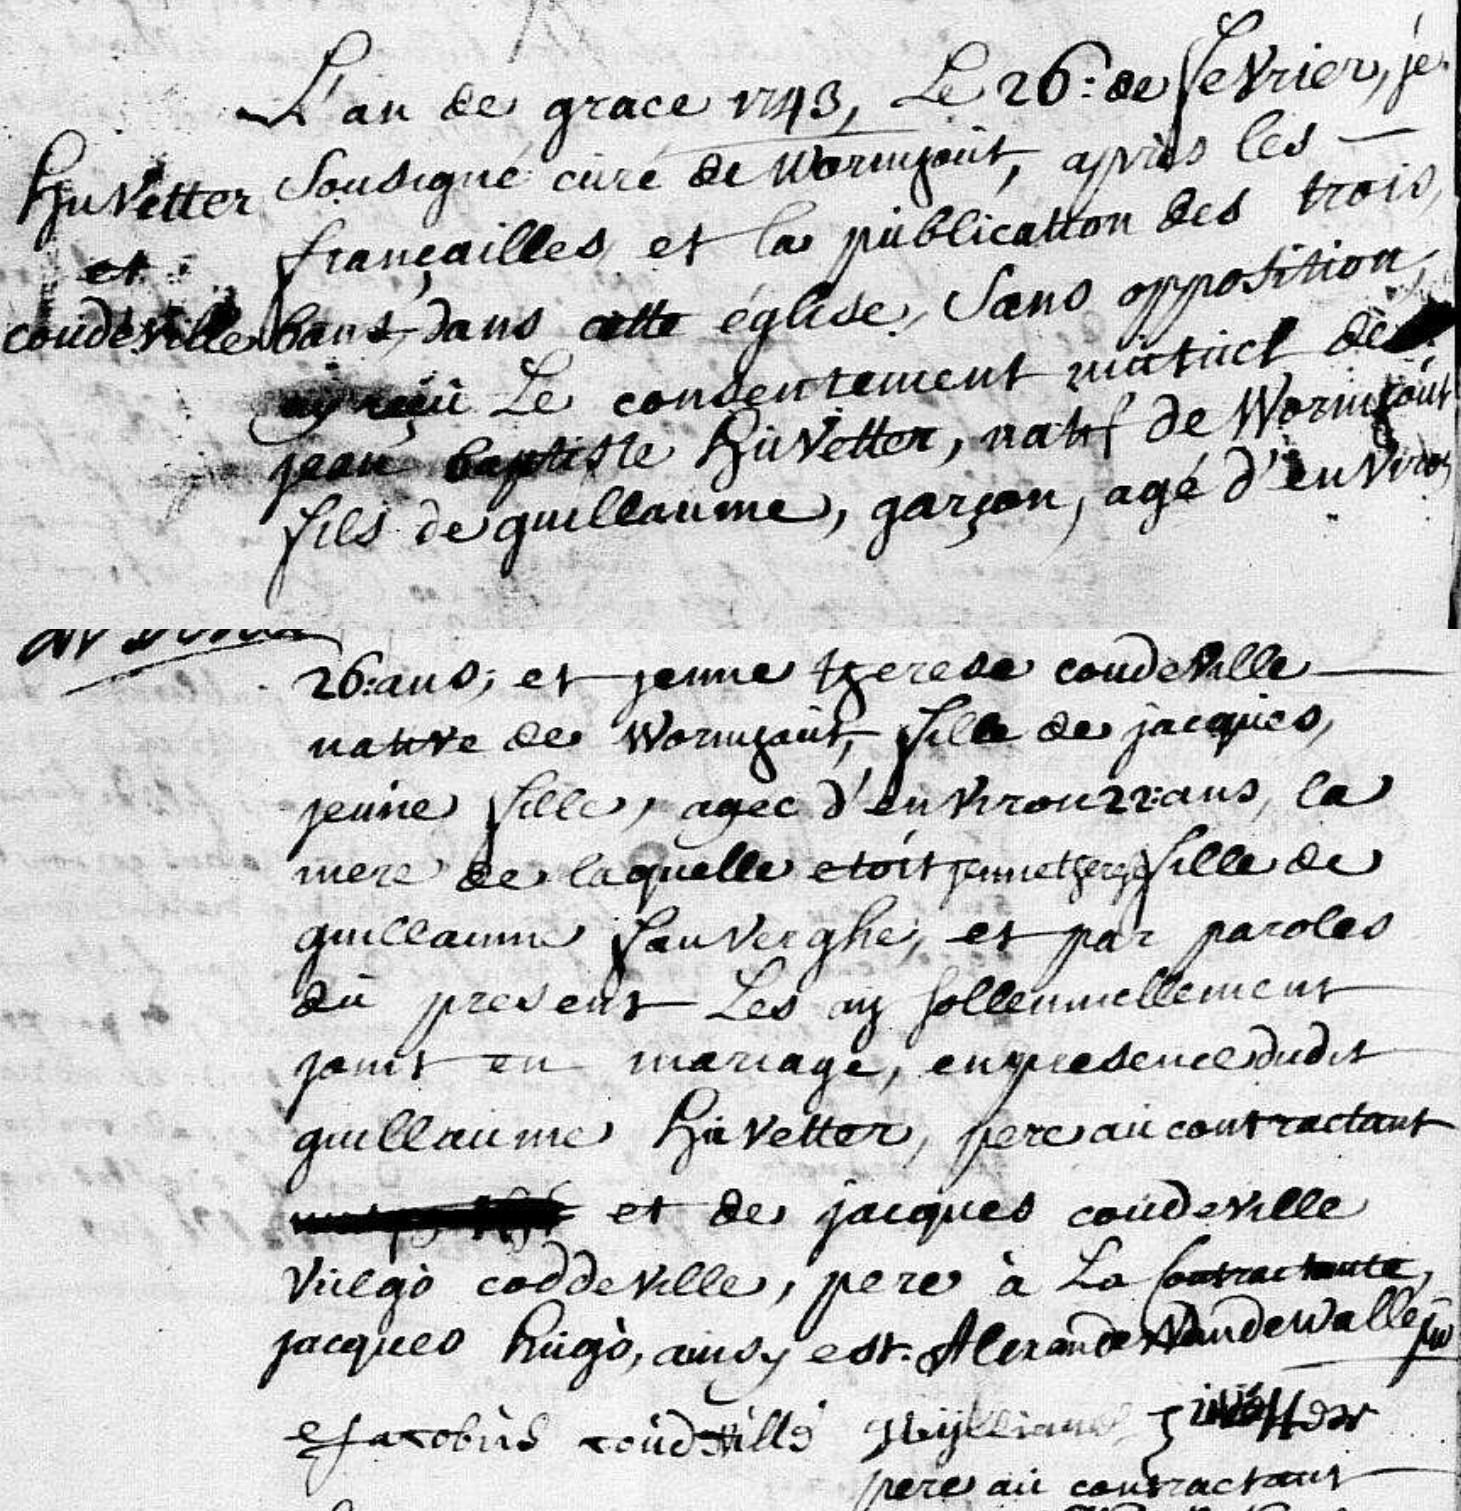 L'an de grace 1743, Le 26: de fevrier, je
Huvetter
et
coudeville
Sousigné curé de Wormhout, après les
françailles et la publication des trois
bans, dans cette église, Sans opposition,
ay reçu Le consentement mutuel de
jean baptiste Huvetter, natif de Wormhout
fils de guillaume, garçon, agé d'environ
26: ans; et jenne therese coudeville
native de Wormhout, fille de jacques,
jeune fille, agee d'environ 22: ans, la
mere de laquelle etoit jenne therese fille de
guillaume fauverghe, et par paroles
du present Les ay sollennellement
joint en mariage, en presence dudit
guillaume Huvetter, pere au contractant
et de jacques coudeville
vulgò coddeville, pere à La Contractante,
jacques hugò, ainsy est. Alexandre Vandewalle
Jacobus coudeville
pere au contractant